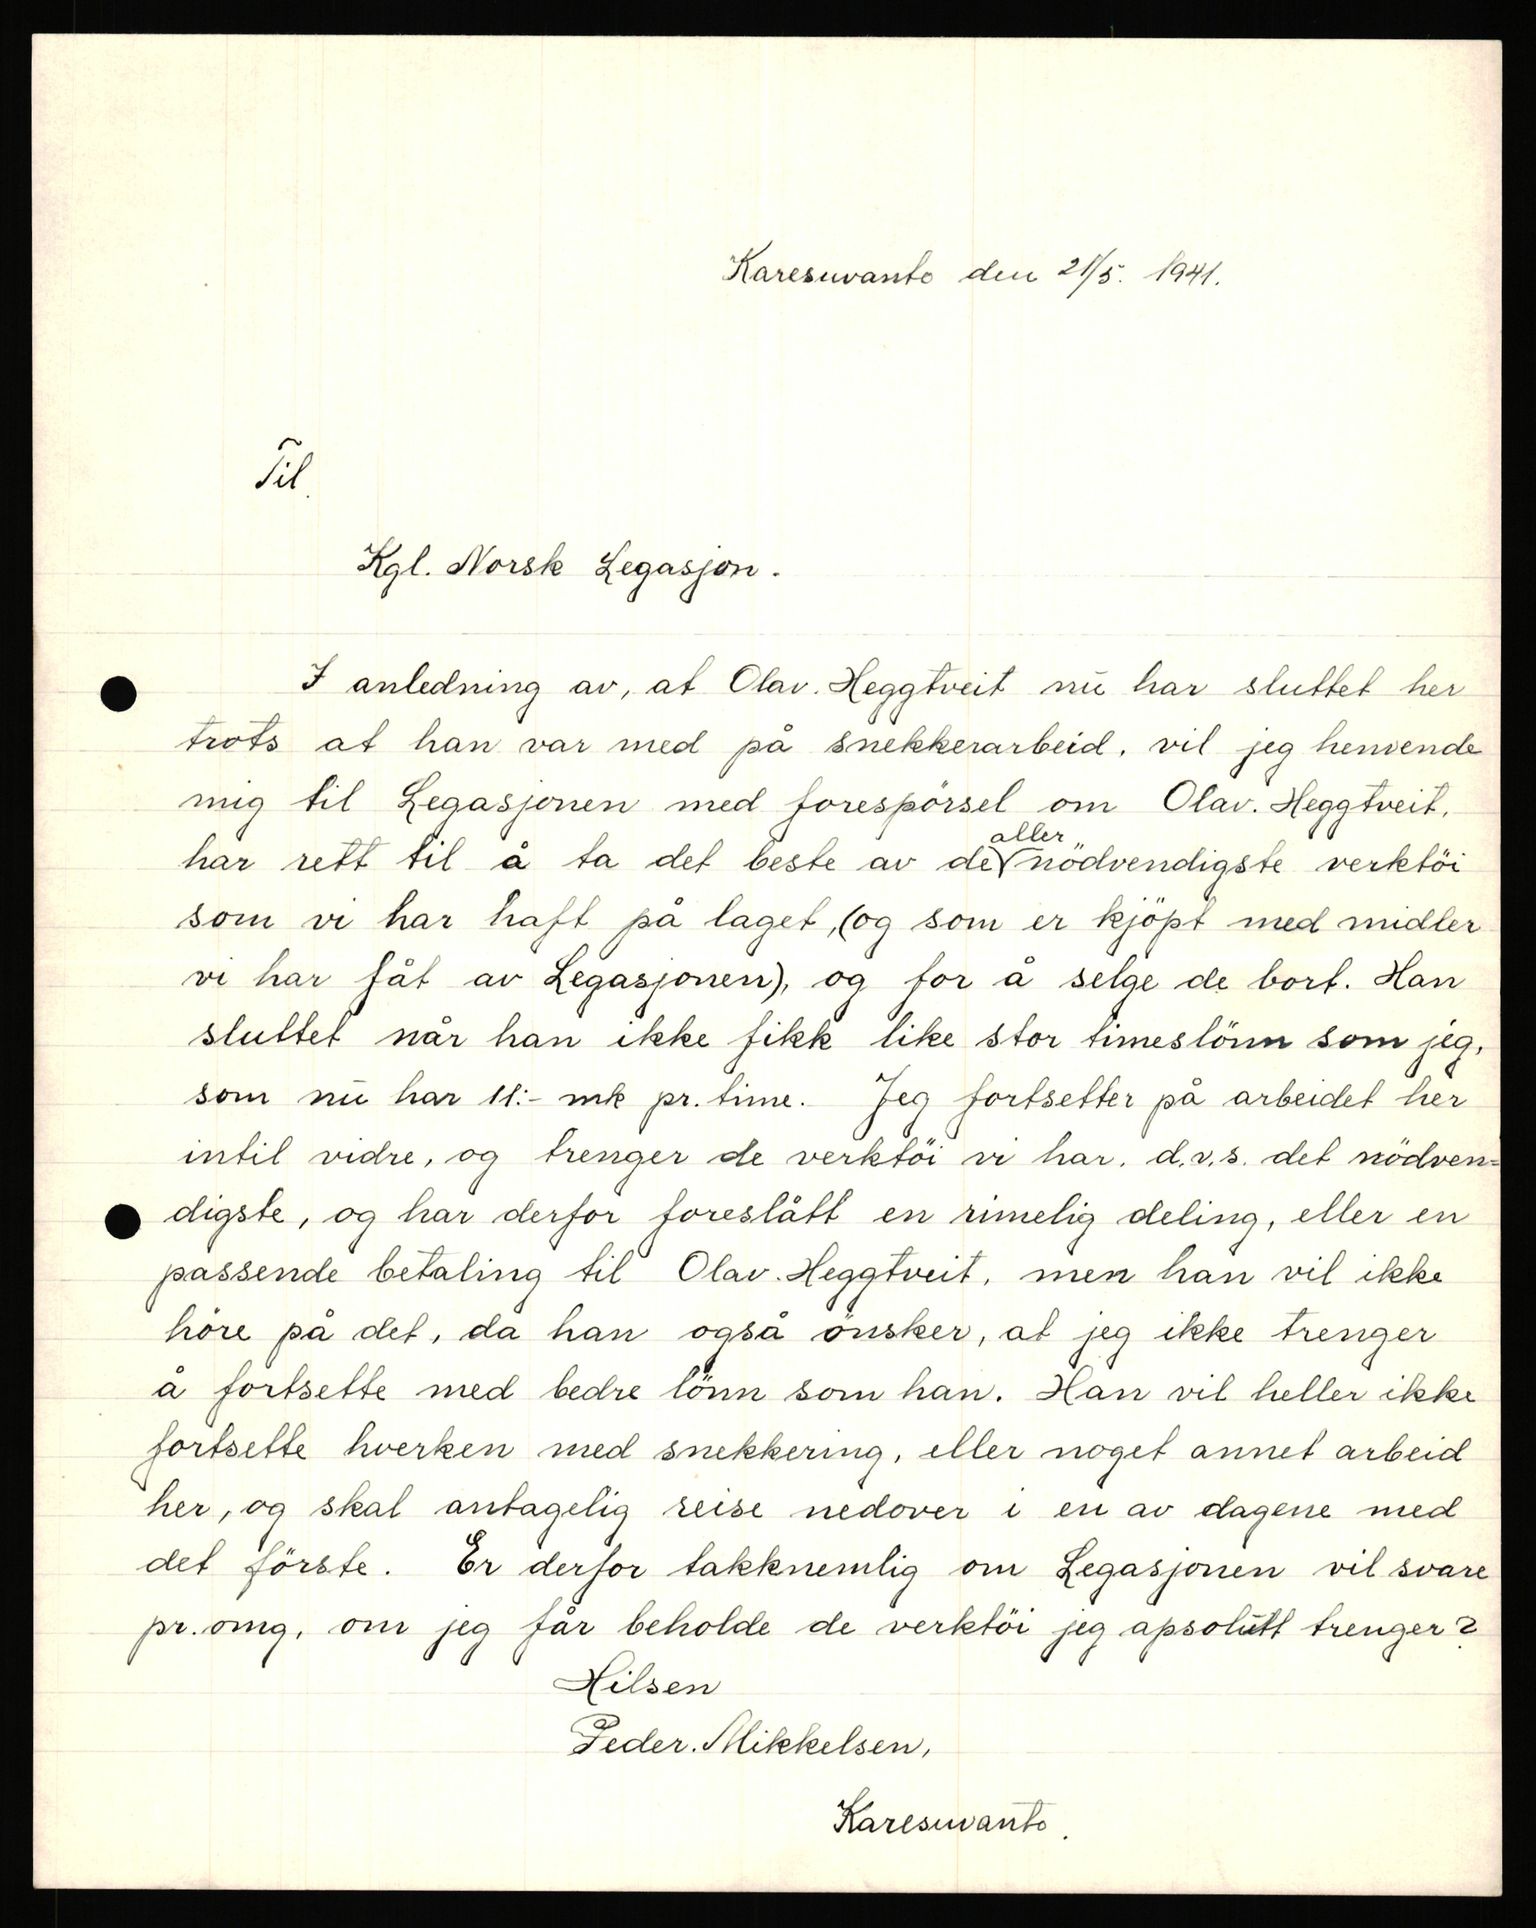 Karesuvanto den 21/5. 1941.
Til.
Kgl. Norsk Legasjon.
I anledning av, at Olav. Heggtveit nū har sluttet her
trots at han var med på snekkerarbeid, vil jeg henvende
mig til Legasjonen med forespörsel om Olav. Heggtveit,
har rett til å ta det beste av de aller nödvendigste verktöi
som vi har haft på laget, (og som er kjöpt med midler
vi har fåt av Legasjonen), og for å selge de bort. Han
sluttet når han ikke fikk like stor timeslönn som jeg,
som nū har 11:- mk pr. time. Jeg fortsetter på arbeidet her
intil vidre, og trenger de verktöi vi har, d.v.s. det nödven=
digste, og har derfor foreslått en rimelig deling, eller en
passende betaling til Olav. Heggtveit, men han vil ikke
höre på det, da han også önsker, at jeg ikke trenger
å fortsette med bedre lönn som han. Han vil heller ikke
fortsette hverken med snekkering, eller noget annet arbeid
her, og skal antagelig reise nedover i en av dagene med
det förste. Er derfor takknemlig om Legasjonen vil svare
pr. omg, om jeg får beholde de verktöi jeg apsolūtt trenger?
Hilsen
Peder. Mikkelsen,
Karesuvanto.